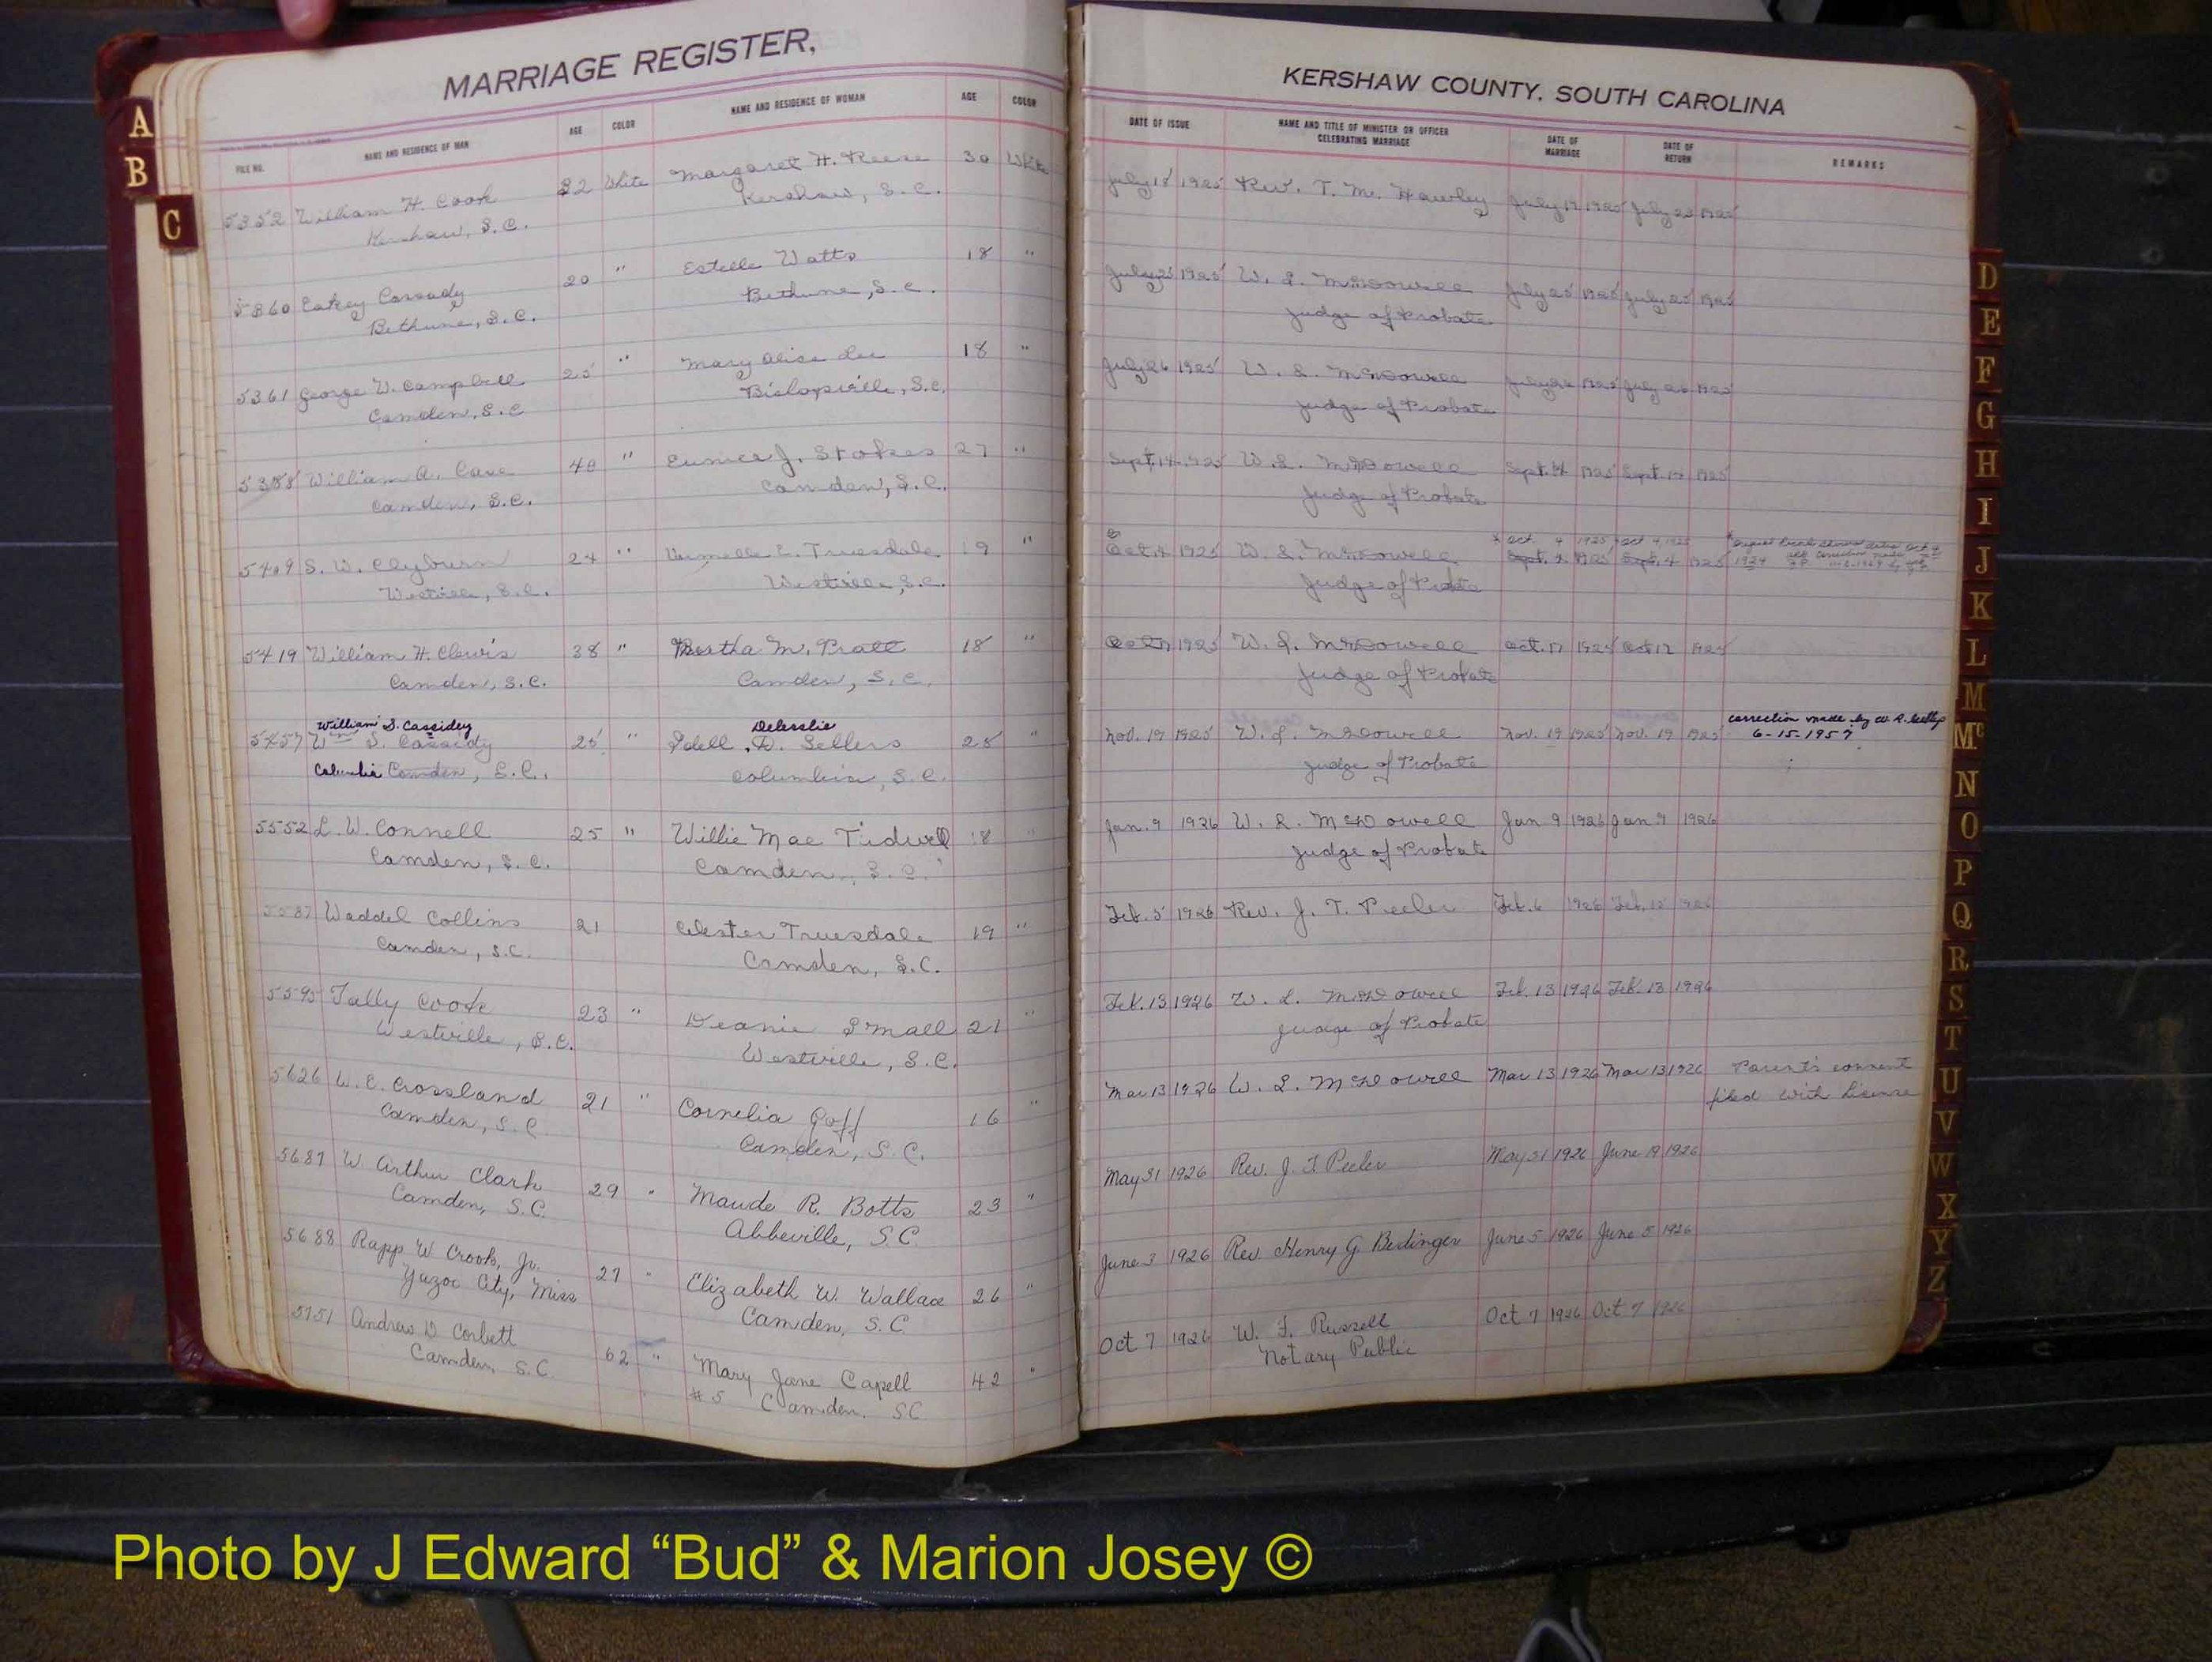 MARRIAGE REGISTER,
FILE NO. NAME AND RESIDENCE OF MAN AGE COLOR NAME AND RESIDENCE OF WOMAN AGE COLOR
William H. Cook 32 White Margaret H. Reese 30 White
Kershaw, S.C. Kershaw, S.C.
5360 Cassady 20 " Estelle Watts 18 "
Bethune, S.C. Bethune, S.C.
5361 George W. Campbell 25 " Mary Alice Lee 18 "
Camden, S.C Bishopville, S.C.
William A. 40 " Eunice J. Stokes 27 "
Camden, S.C. Camden, S.C.
5409 S. W. Clyburn 24 " Truesdale 19 "
Westville, S.C. Westville, S.C.
5419 William H. Clewis 38 " Bertha M. Pratt 18 "
Camden, S.C. Camden, S.C.
William S. Cassidey Delesslie
5457 Wm S. Cassidy 25 " Idell D. Sellers 25 "
Columbia Camden, S.C. Columbia, S.C.
5552 L. W. Connell 25 " Willie Mae Tidwell 18 "
Camden, S.C. Camden, S.C.
5587 Waddel Collins 21 Truesdale 19 "
Camden, S.C. Camden, S.C.
5595 Tally Cook 23 " Deanie Small 21 "
Westville, S.C. Westville, S.C.
5626 W. E. Crossland 21 " Cornelia Goff 16 "
Camden, S.C. Camden, S.C.
5687 W. Arthur Clark 29 " Maude R. Botts 23 "
Camden, S.C. Abbeville, S.C.
5688 Rapp W. Crook, Jr. 27 " Elizabeth W. Wallace 26 "
Yazoo City, Miss Camden, S.C
5751 Andrew D Corbett 62 " Mary Jane Capell 42 "
Camden, S.C. #5 Camden, SC
KERSHAW COUNTY, SOUTH CAROLINA
DATE OF ISSUE NAME AND TITLE OF MINISTER OR OFFICER CELEBRATING MARRIAGE DATE OF MARRIAGE DATE OF RETURN REMARKS
July 18 1925 Rev. T. M. Hawley July 19 1925 July 23 1925
July 25 1925 W. L. McDowell July 25 1925 July 25 1925
Judge of Probate
July 26 1925 W. L. McDowell July 26 1925 July 26 1925
Judge of Probate
Sept. 14 1925 W. L. McDowell Sept. 14 1925 Sept. 1925
Judge of Probate
Oct. 4 1925 Oct 4, 1925
Oct. 4 1925 W. L. McDowell Sept. 4 1925 Sept. 4 1925
Judge of Probate
Oct 17 1925 W. L. McDowell Oct. 17 1925 Oct 17 1925
Judge of Probate
correction made by W. R.
Nov. 19 1925 W. L. McDowell Nov. 19 1925 Nov. 19 1925 6-15-1957
Judge of Probate
Jan. 9 1926 W. L. McDowell Jan 9 1926 Jan 9 1926
Judge of Probate
Feb. 5 1926 Rev. J. T. Peeler Feb. 6 1926 Feb. 15 1926
Feb. 13 1926 W. L. McDowell Feb. 13 1926 Feb. 13 1926
Judge of Probate
Mar 13 1926 W. L. McDowell Mar 13 1926 Mar 13 1926 Parent's consent
filed with License
May 31 1926 Rev. J. T Peeler May 31 1926 June 19 1926
June 3 1926 Rev. Henry G. Bedinger June 5 1926 June 5 1926
Oct 7 1926 W. F. Russell Oct 7 1926 Oct 7 1926
Notary Public
A
B
C
D
E
F
G
H
I
J
K
L
M
Mc
N
O
P
Q
R
S
T
U
V
W
X
Y
Z
Photo by J Edward “Bud” & Marion Josey ©